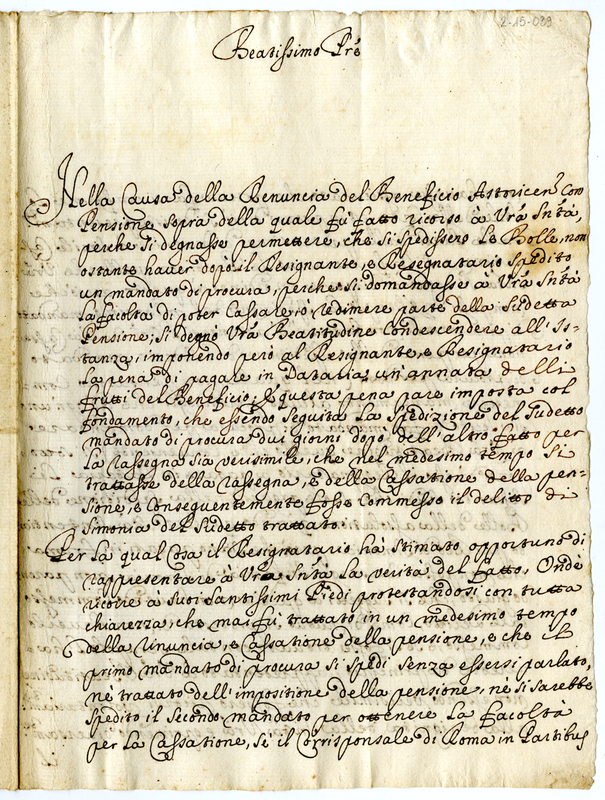 2-15-039
Beatissimo Prê
Nella Causa della Renuncia del Beneficio Astoricen̄ Con
Pensione sopra della quale fù fatto ricorso à Vrâ Sn̂tà,
perche si degnasse permettere, che si spedissero Le Bolle, non
ostante hauer dopò il Resignante, e Resegnatario spedito
un mandato di procura, perche si domandasse à Vrâ Sn̂tà
la facoltà di poter Cassare, ò redimere parte della Sudetta
Pensione; si degnò Vrâ Beatitudine Condescendere all'Is-
tanza, imponendo però al Resignante, e Resignatario
la pena di pagare in Dataria un'annata delli
frutti del Beneficio; e questa pena pare imposta col
fondamento, che essendo seguita la spedizione del sudetto
mandato di procura dui giorni dopò dell'altro fatto per
la rassegna sia verisimile, che nel medesimo tempo si
trattasse della rassegna, e della Cassatione della pen-
sione, e Conseguentemente fosse Commesso il delitto di
simonia del sudetto trattato.
Per la qual Cosa il Resignatario hà stimato opportuno di
rappresentare à Vrâ Sn̂tà la verità del fatto, Onde
ricorre à Suoi Santissimi Piedi protestandosi con tutta
chiarezza, che mai fù trattato in un medesimo tempo
della rinuncia, e Cassatione della pensione, e che il
primo mandato di procura si spedì senza essersi parlato,
ne trattato dell'impositione della pensione, ne si sarebbe
spedito il secondo mandato per ottenere la facoltà
per la Cassatione, sè il Corrisponsale di Roma in Partibus